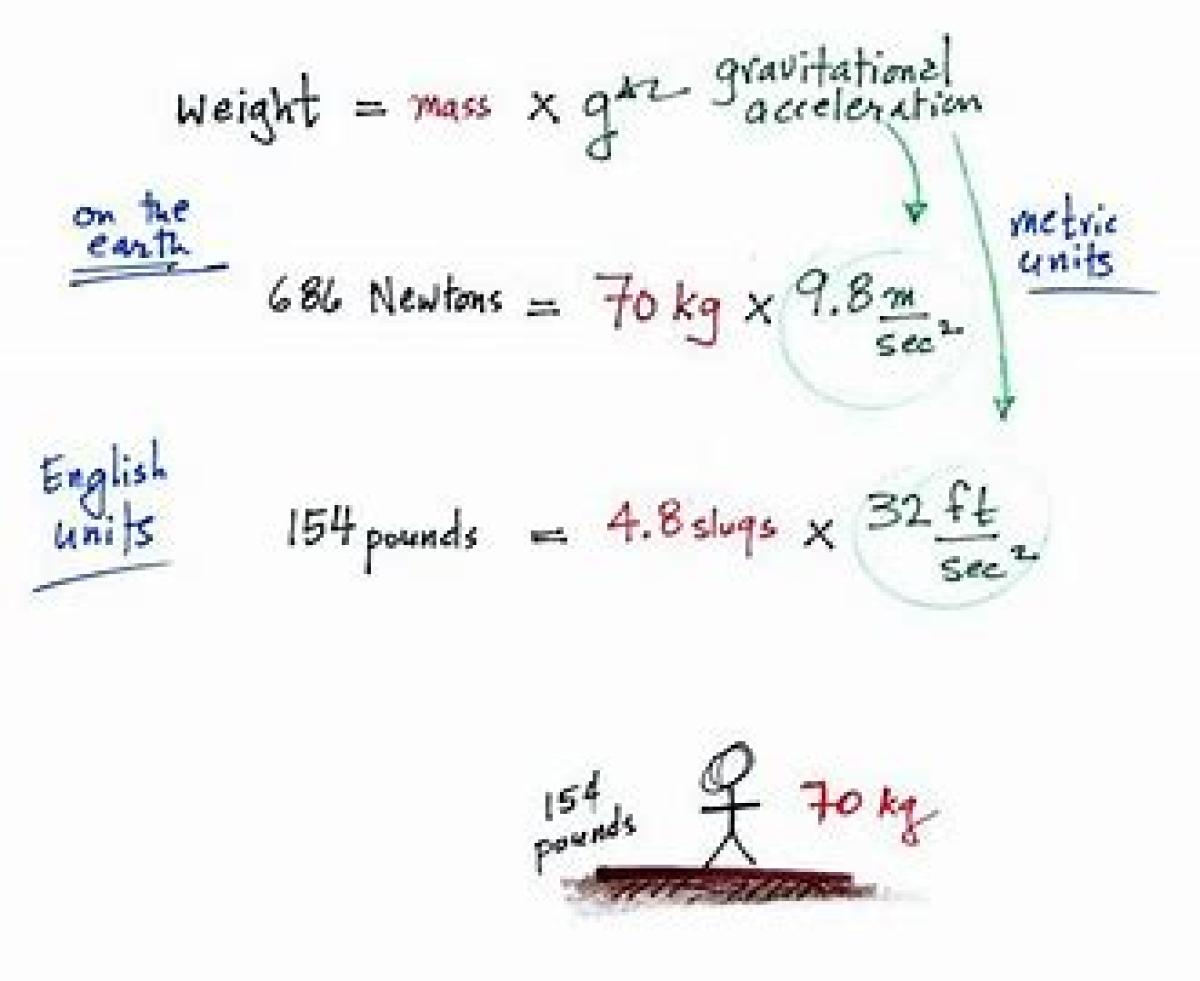 weight = mass × g gravitational
acceleration
on the
earth
metric
units
686 Newtons = 70 kg × 9.8 m
sec²
English
units
154 pounds = 4.8 slugs × 32 ft
sec²
154
pounds
70 kg